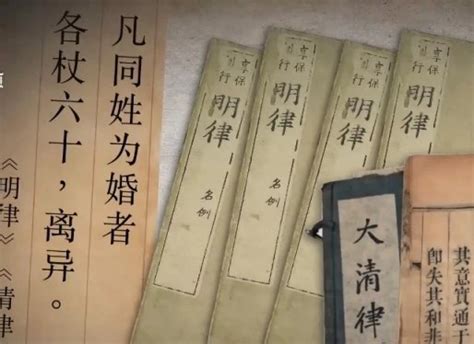 凡同姓为婚者
各杖六十，离异。
《明律》《清律
明律
名例
明律
名例
明律
名例
明律
大清律
其意實通于
即失其和非